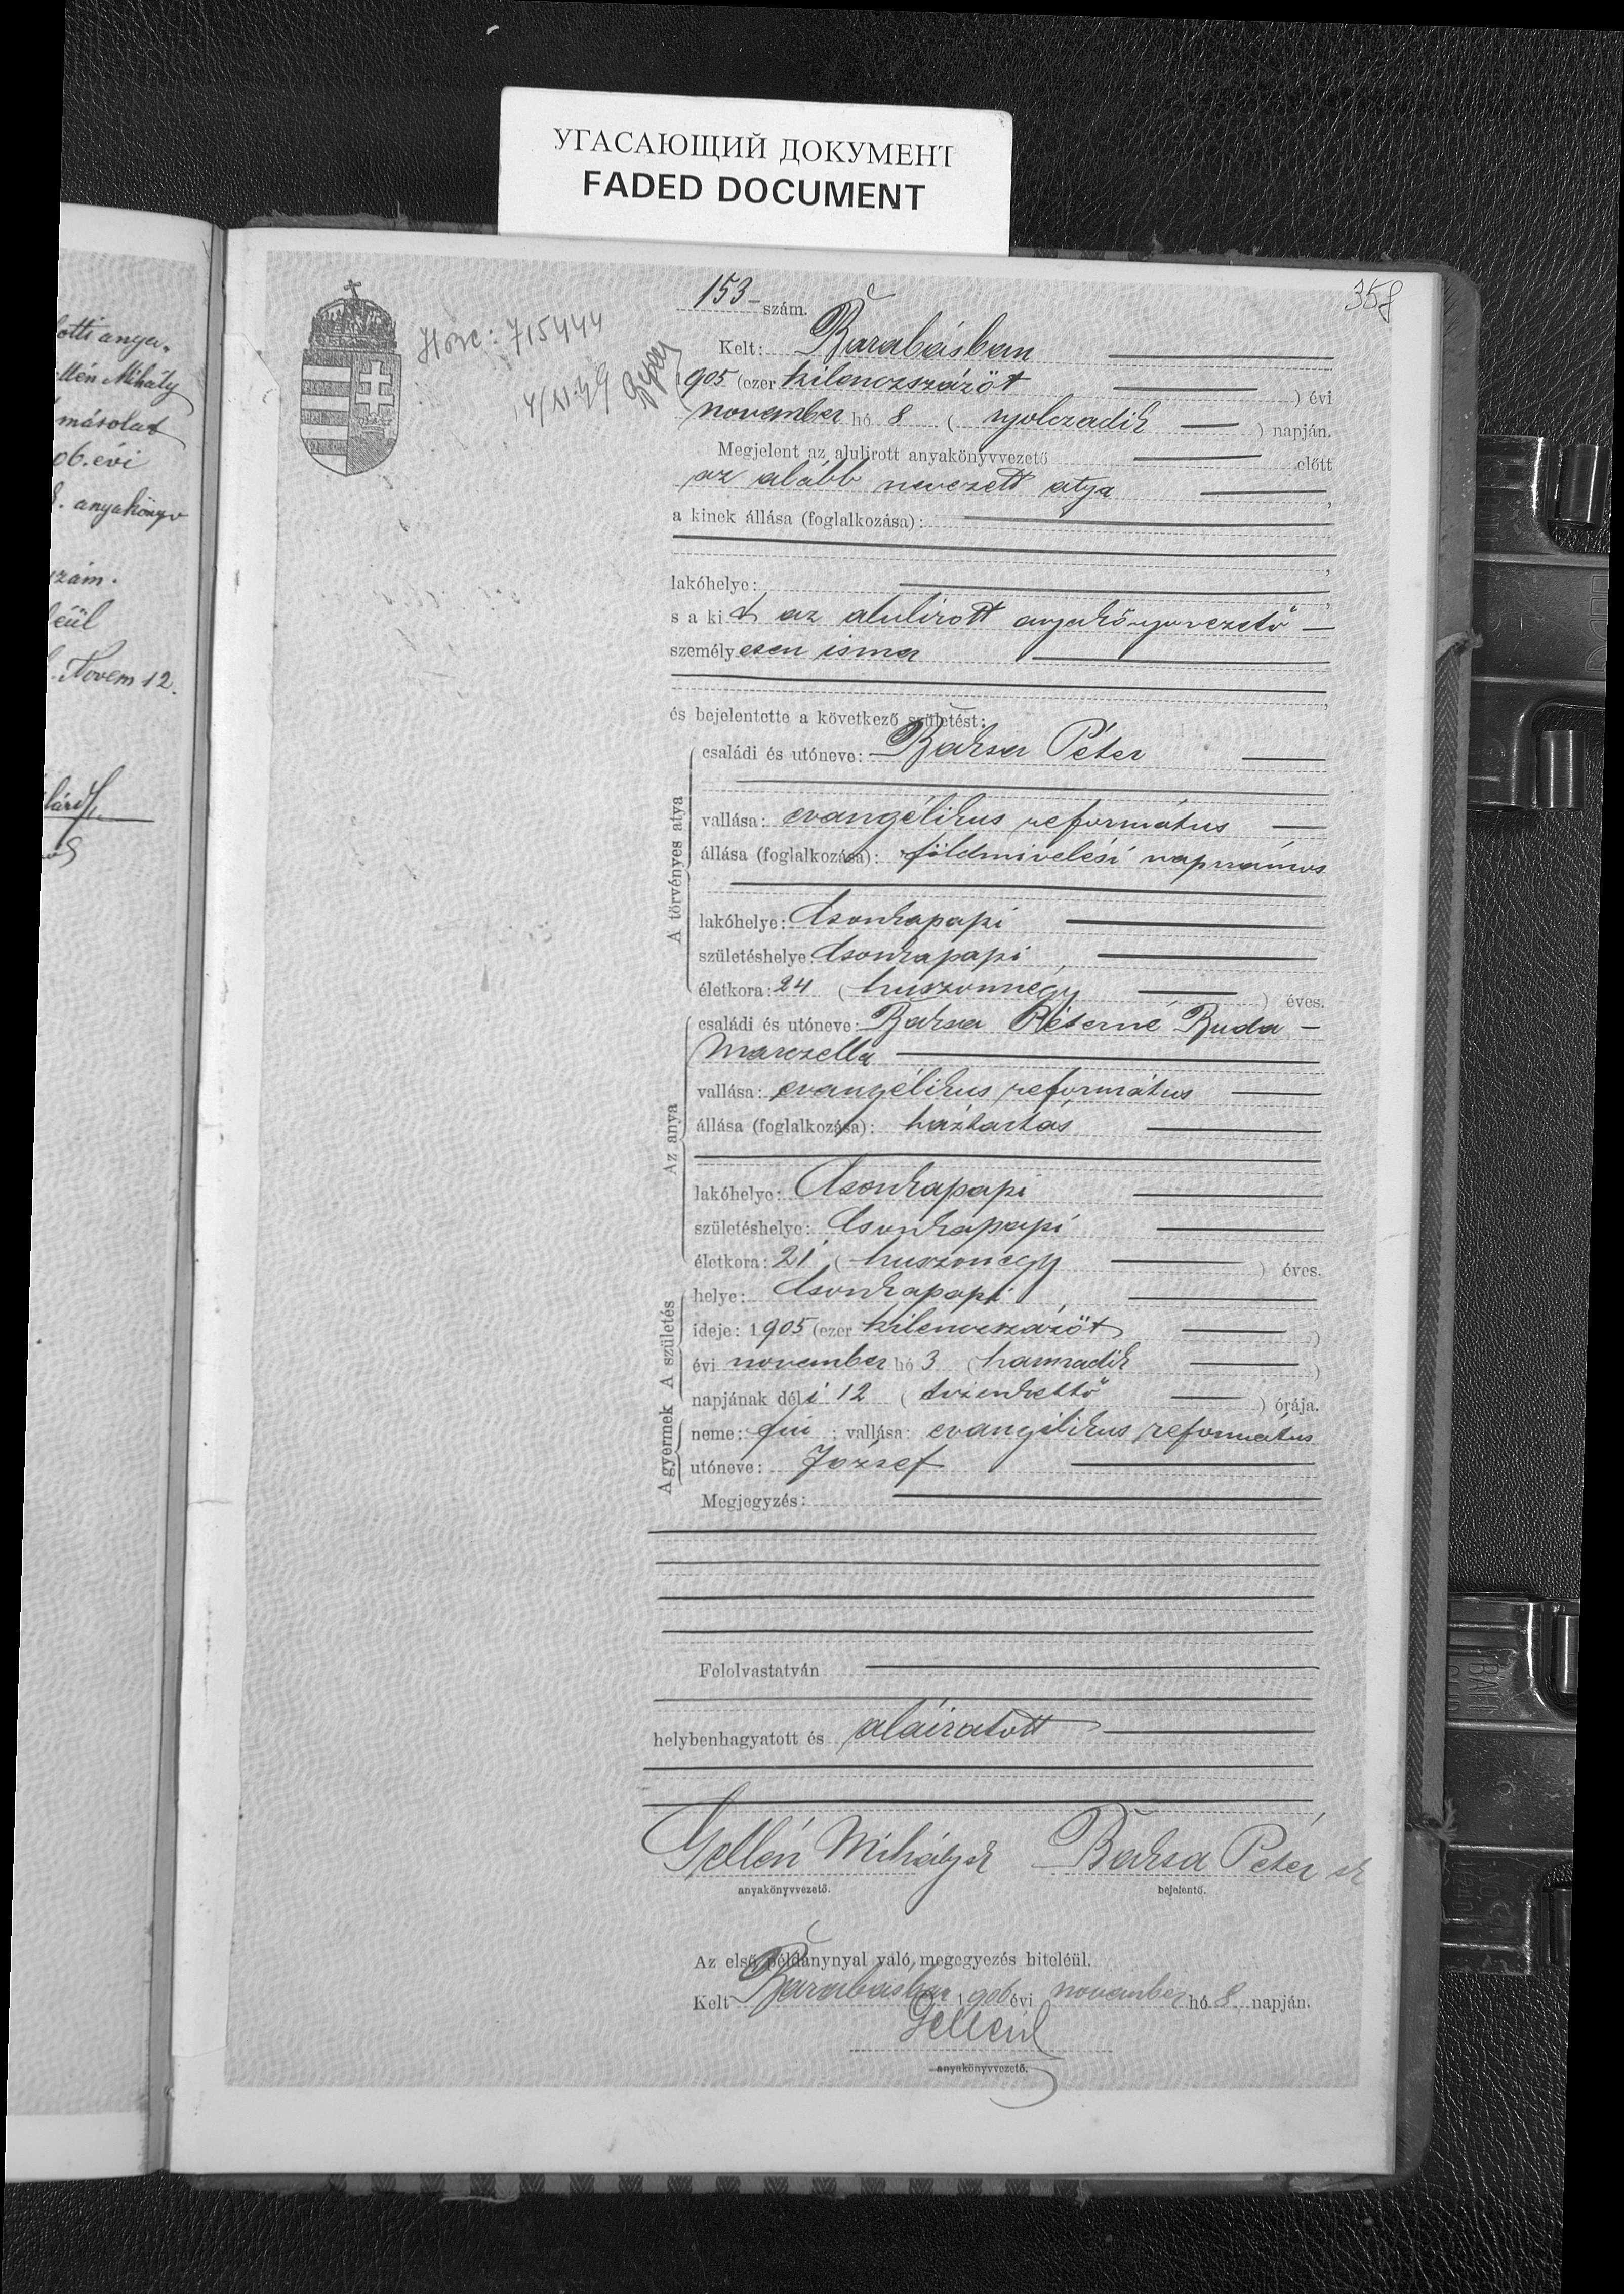 УГАСАЮЩИЙ ДОКУМЕНТ
FADED DOCUMENT
358
otti anya-
llén Mihály
másolat
06. évi
8. anyakönyv
szám.
eül
Novem 12.
715444
153 szám.
Kelt: Barabásban
1905 (ezer kilenczszázöt ) évi
november hó 8 ( nyolczadik ) napján.
Megjelent az alulirott anyakönyvvezető előtt
az alább nevezett atya ,
a kinek állása (foglalkozása):
,
lakóhelye: ,
s a kit az alulirott anyakönyvvezető
személyesen ismer
,
és bejelentette a következő születést:
A törvényes atya
családi és utóneve: Baksa Péter
vallása: evangélikus református
állása (foglalkozása): földmivelési napszámos
lakóhelye: Csonkapapi
születéshelye: Csonkapapi
életkora: 24 ( huszonnégy ) éves.
Az anya
családi és utóneve: Baksa Péterné Buda
Marczella
vallása: evangélikus református
állása (foglalkozása): háztartás
lakóhelye: Csonkapapi
születéshelye: Csonkapapi
életkora: 21 ( huszonegy ) éves.
A születés
helye: Csonkapapi
ideje: 1905 (ezer kilenczszázöt )
évi november hó 3 ( harmadik )
napjának déli 12 ( tizenkettő ) órája.
A gyermek
neme: fiú ; vallása: evangélikus református
utóneve: József
Megjegyzés:
Felolvastatván
helybenhagyatott és aláiratott
Gellén Mihály sk Baksa Péter sk
anyakönyvvezető. bejelentő.
Az első példánynyal való megegyezés hiteléül.
Kelt Barabásban 1906 évi november hó 8 napján.
Gellén
anyakönyvvezető.